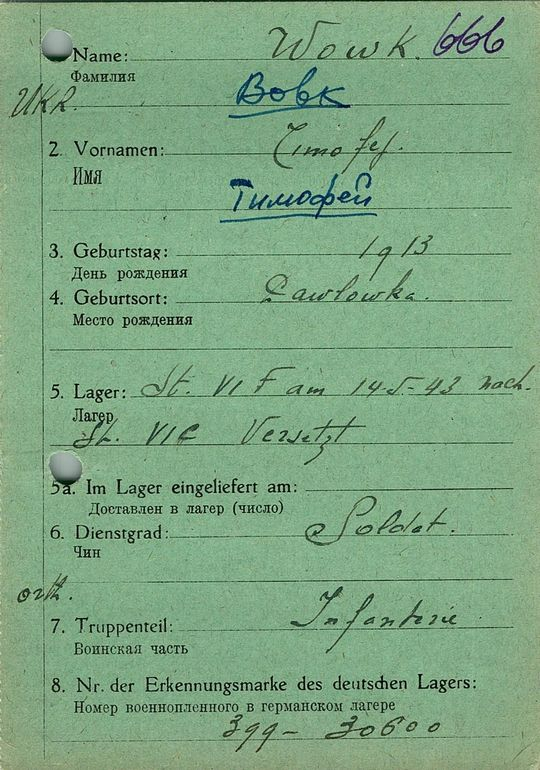 Name: Wowk. 666
Фамилия
UKR. Вовк
2. Vornamen: Timofej.
Имя
Тимофей
3. Geburtstag: 1913
День рождения
4. Geburtsort: Pawlowka.
Место рождения
5. Lager: St. VI F am 14-5-43 nach.
Лагер
St. VIC Versetzt
5a. Im Lager eingeliefert am:
Доставлен в лагер (число)
6. Dienstgrad: Soldat.
Чин
orth.
7. Truppenteil: Infanterie
Воинская часть
8. Nr. der Erkennungsmarke des deutschen Lagers:
Номер военнопленного в германском лагере
399- 30600